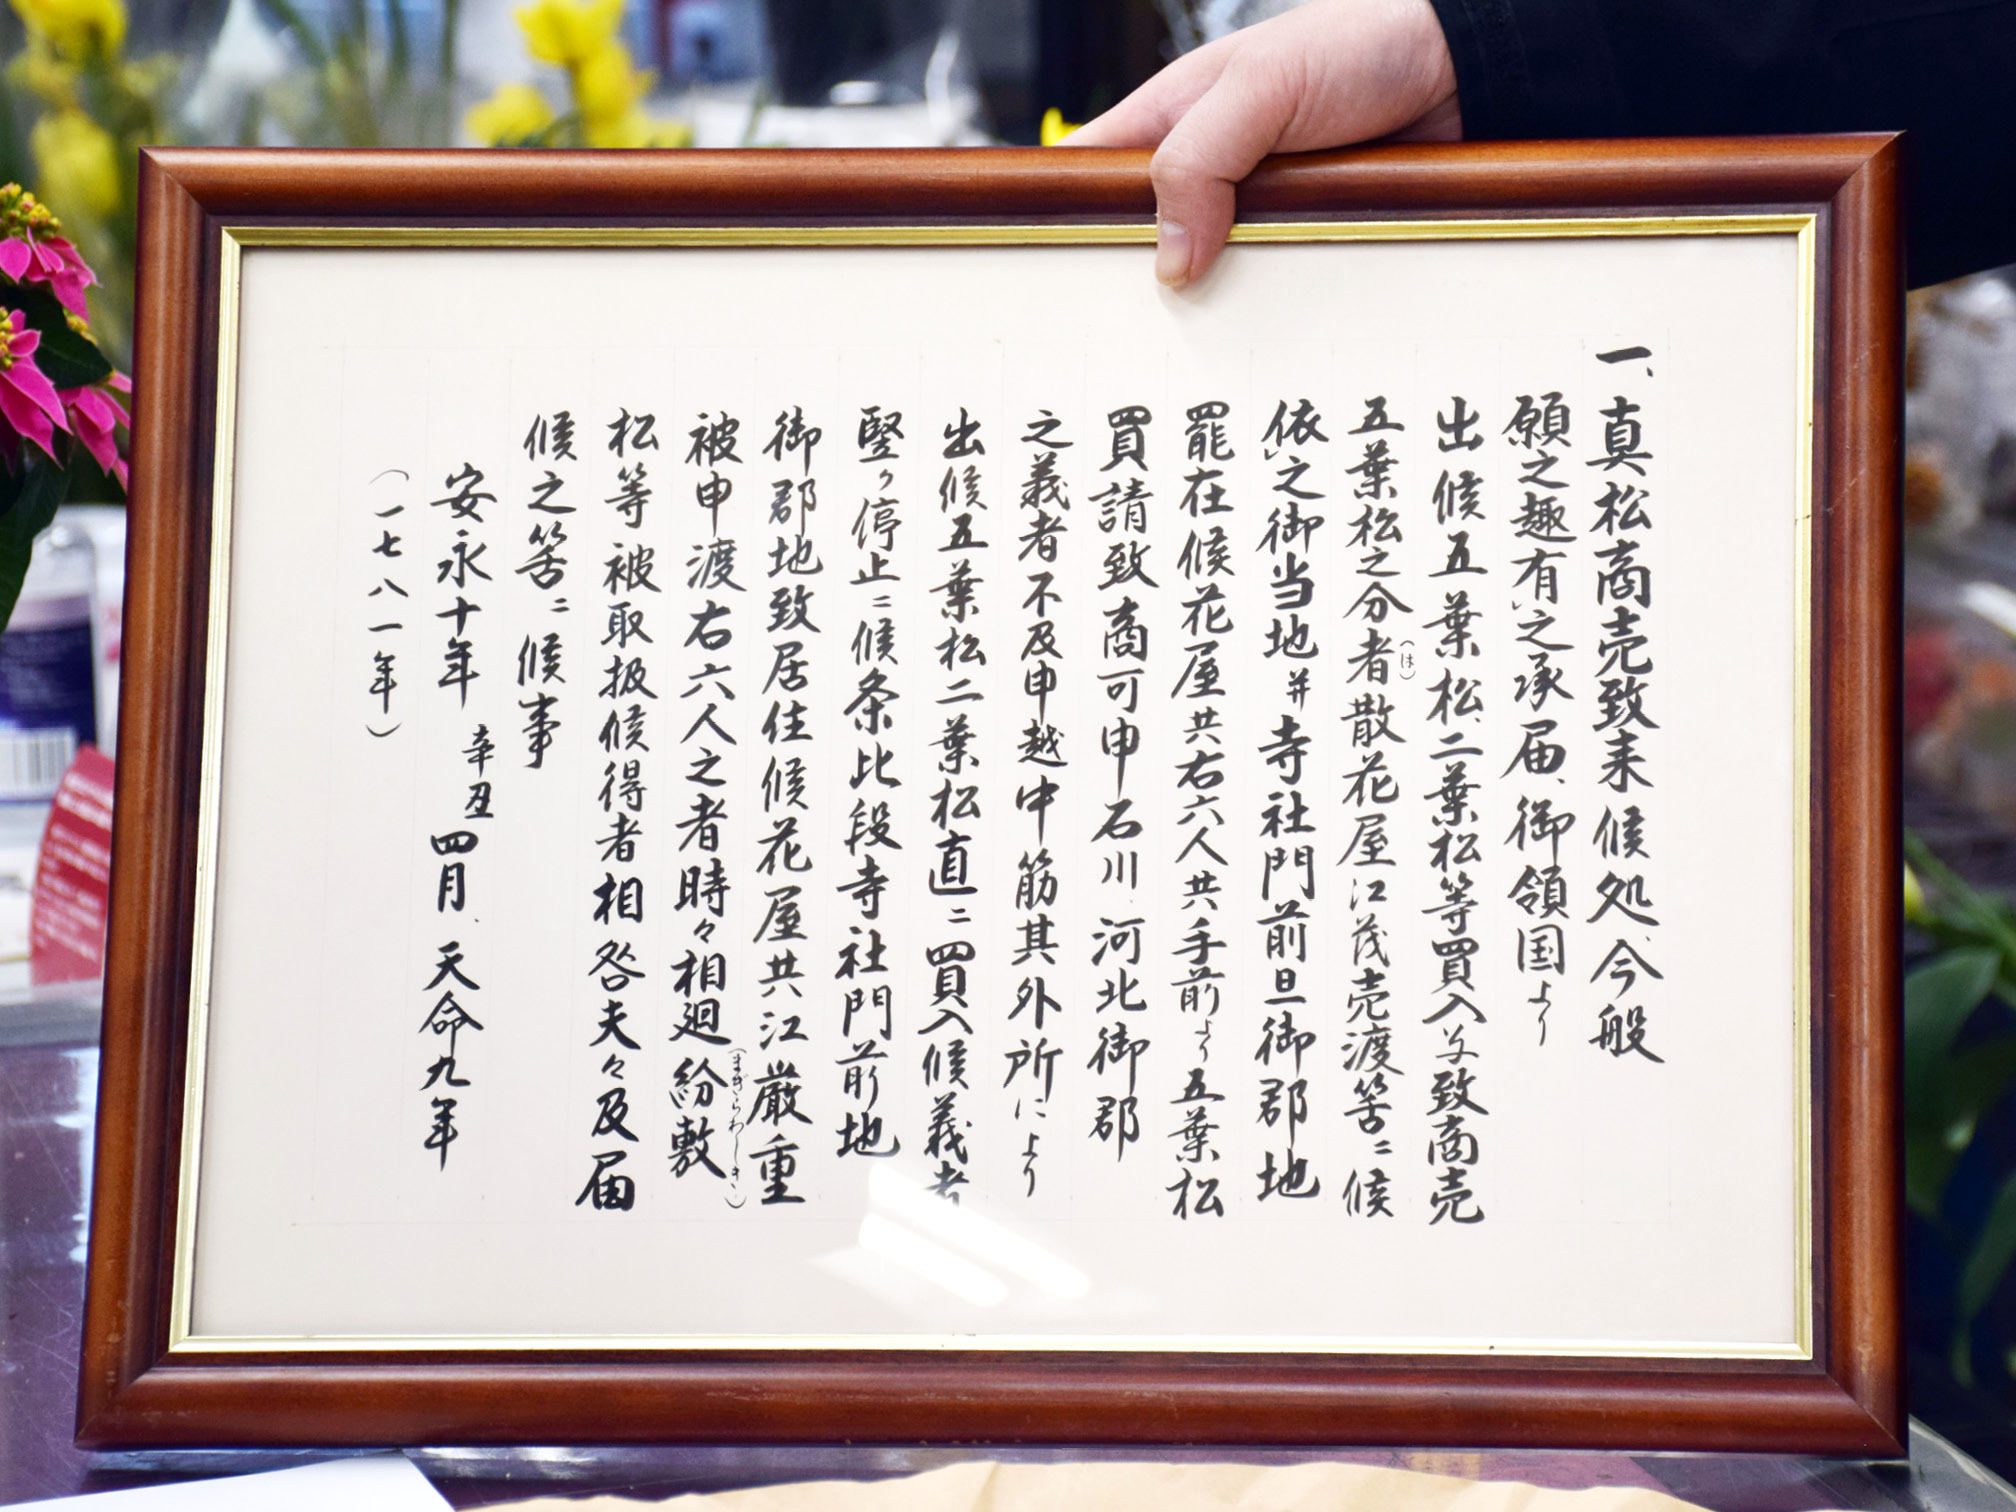 一、真松商売致来候処、今般
願之趣有之承届、御領国より
出候五葉松、二葉松等買入〆致商売
五葉松之分者散花屋江茂売渡筈ニ候
(は)
依之御当地并寺社門前旦御郡地
罷在候花屋共右六人共手前より五葉松
買請致商可申石川、河北御郡
之義者不及申越中筋其外所によより
出候五葉松二葉松直ニ買入候義者
堅ク停止ニ候条比段寺社門前地
御郡地致居住候花屋共江厳重
被申渡右六人之者時々相廻紛敷
(まぎらわしき)
松等被取扱候得者相咎夫々及届
候之筈ニ候事
安永十年 辛丑 四月、天命九年
(一七八一年)